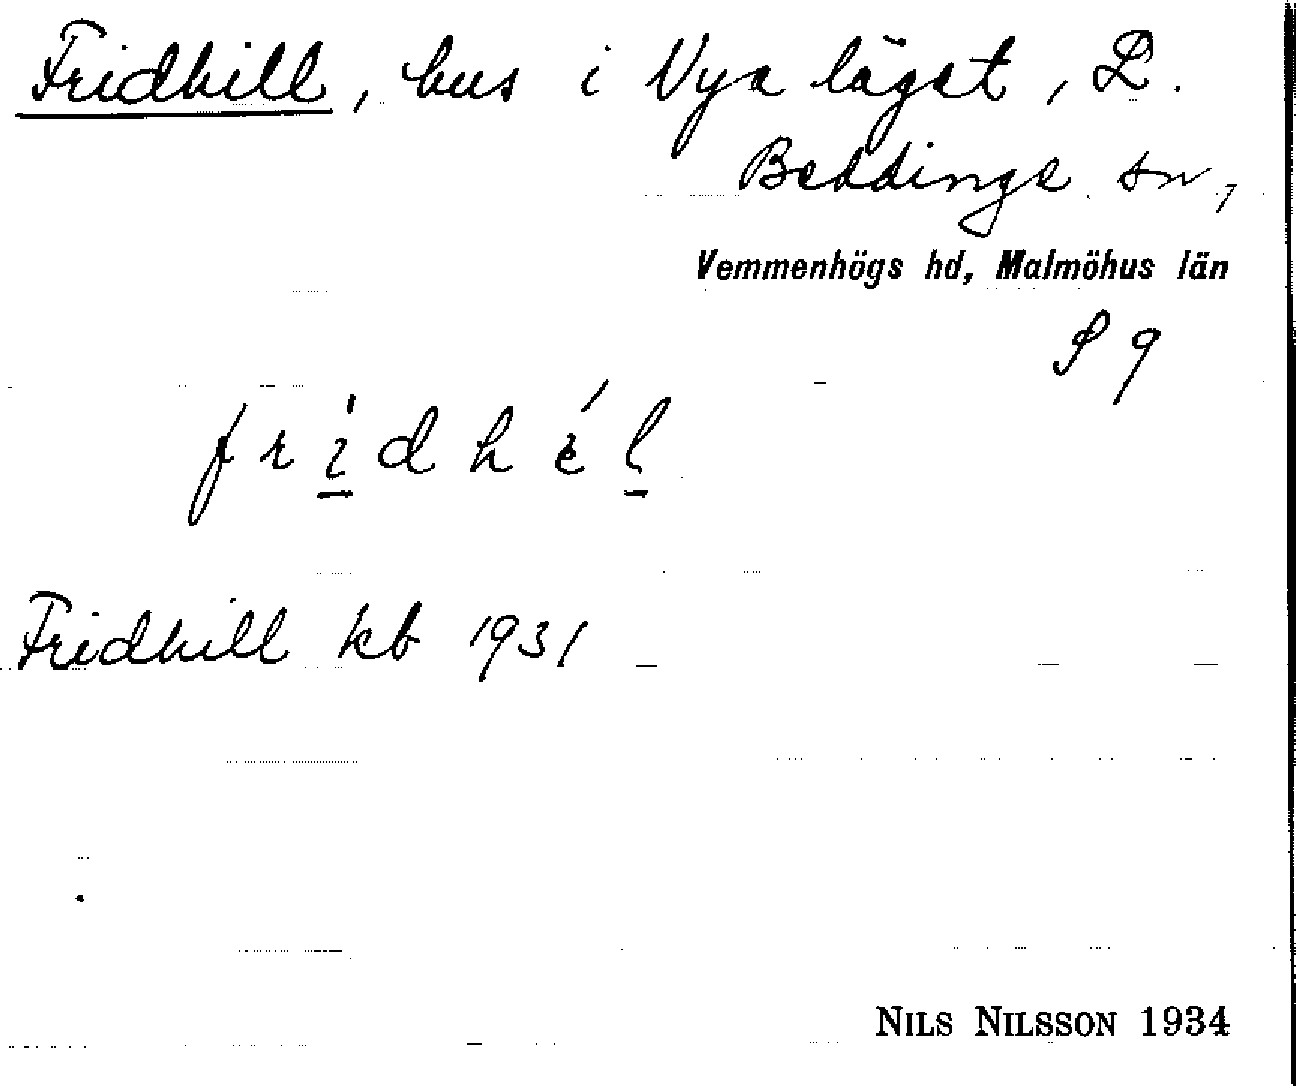 Fridhill, hus i Nya läget, L.
Beddinge sn,
Vemmenhögs hd, Malmöhus län
S 9
fri̱dhéḻ
Fridhill kb 1931
NILS NILSSON 1934